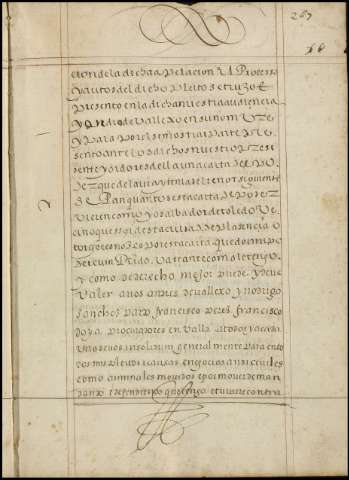 267
56
con de la dicha Relacion el Proceso
y autos del dicho Pleito se truxo E
Presento en la dicha nuestra audiencia
y Pedro de Valle xo en su nombre
y Para Poder se mostrar Parte Pre
sento ante los dichos nuestro Presi
dente y oydores della una carta de PO
dez que de la vista y tenia el tenor siguiente
Sepan quantos esta carta de Poder
Vieren como yo saluador de toledo Ve
cino que soy desta ciudad de Plasencia o
torgo e conozco Por esta carta que doy mi po
der cunplido vastante como le tengo
y como de derecho mejor puede y deve
valer a vos andres de vallexo y Rodrigo
sanchez Pardo francisco Perez francisco
de oya Procuradores en Valladolid y a cada
uno de vos insolidum general mente Para en to
dos mis Pleitos e causas e negocios ansi ceuiles
como criminales movidos e por mover deman
dando e defendiendo que tengo e tuviere contra